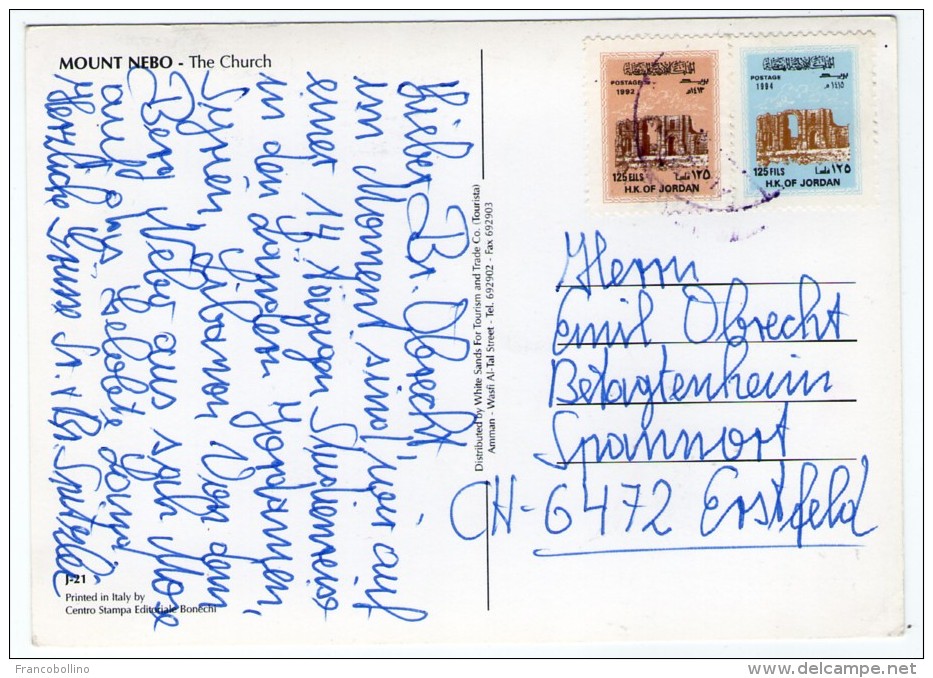 MOUNT NEBO - The Church
Lieber Br. Obrecht!
Im Moment sind wir auf
einer 14 tägigen Studienreise
in den Ländern Jordanien,
Syrien, Libanon. Von dem
Berg Nebo aus sah Mose
auf das gelobte Land
Herzliche Grüsse Sr. + Br.
J-21
Printed in Italy by
Centro Stampa Editoriale Bonechi
Distributed by White Sands For Tourism and Trade Co. (Tourista)
Amman - Wasfi Al-Tal Street - Tel. 692902 - Fax 692903
المملكة الأردنية الهاشمية
POSTAGE بريد
1992 ١٤١٣هـ
125 FILS ١٢٥ فلسا
H.K. OF JORDAN
المملكة الأردنية الهاشمية
POSTAGE بريد
1994 ١٤١٥هـ
125 FILS ١٢٥ فلسا
H.K. OF JORDAN
Herrn
Emil Obrecht
Betagtenheim
Spannort
CH-6472 Erstfeld
Francobollino
www.delcampe.net